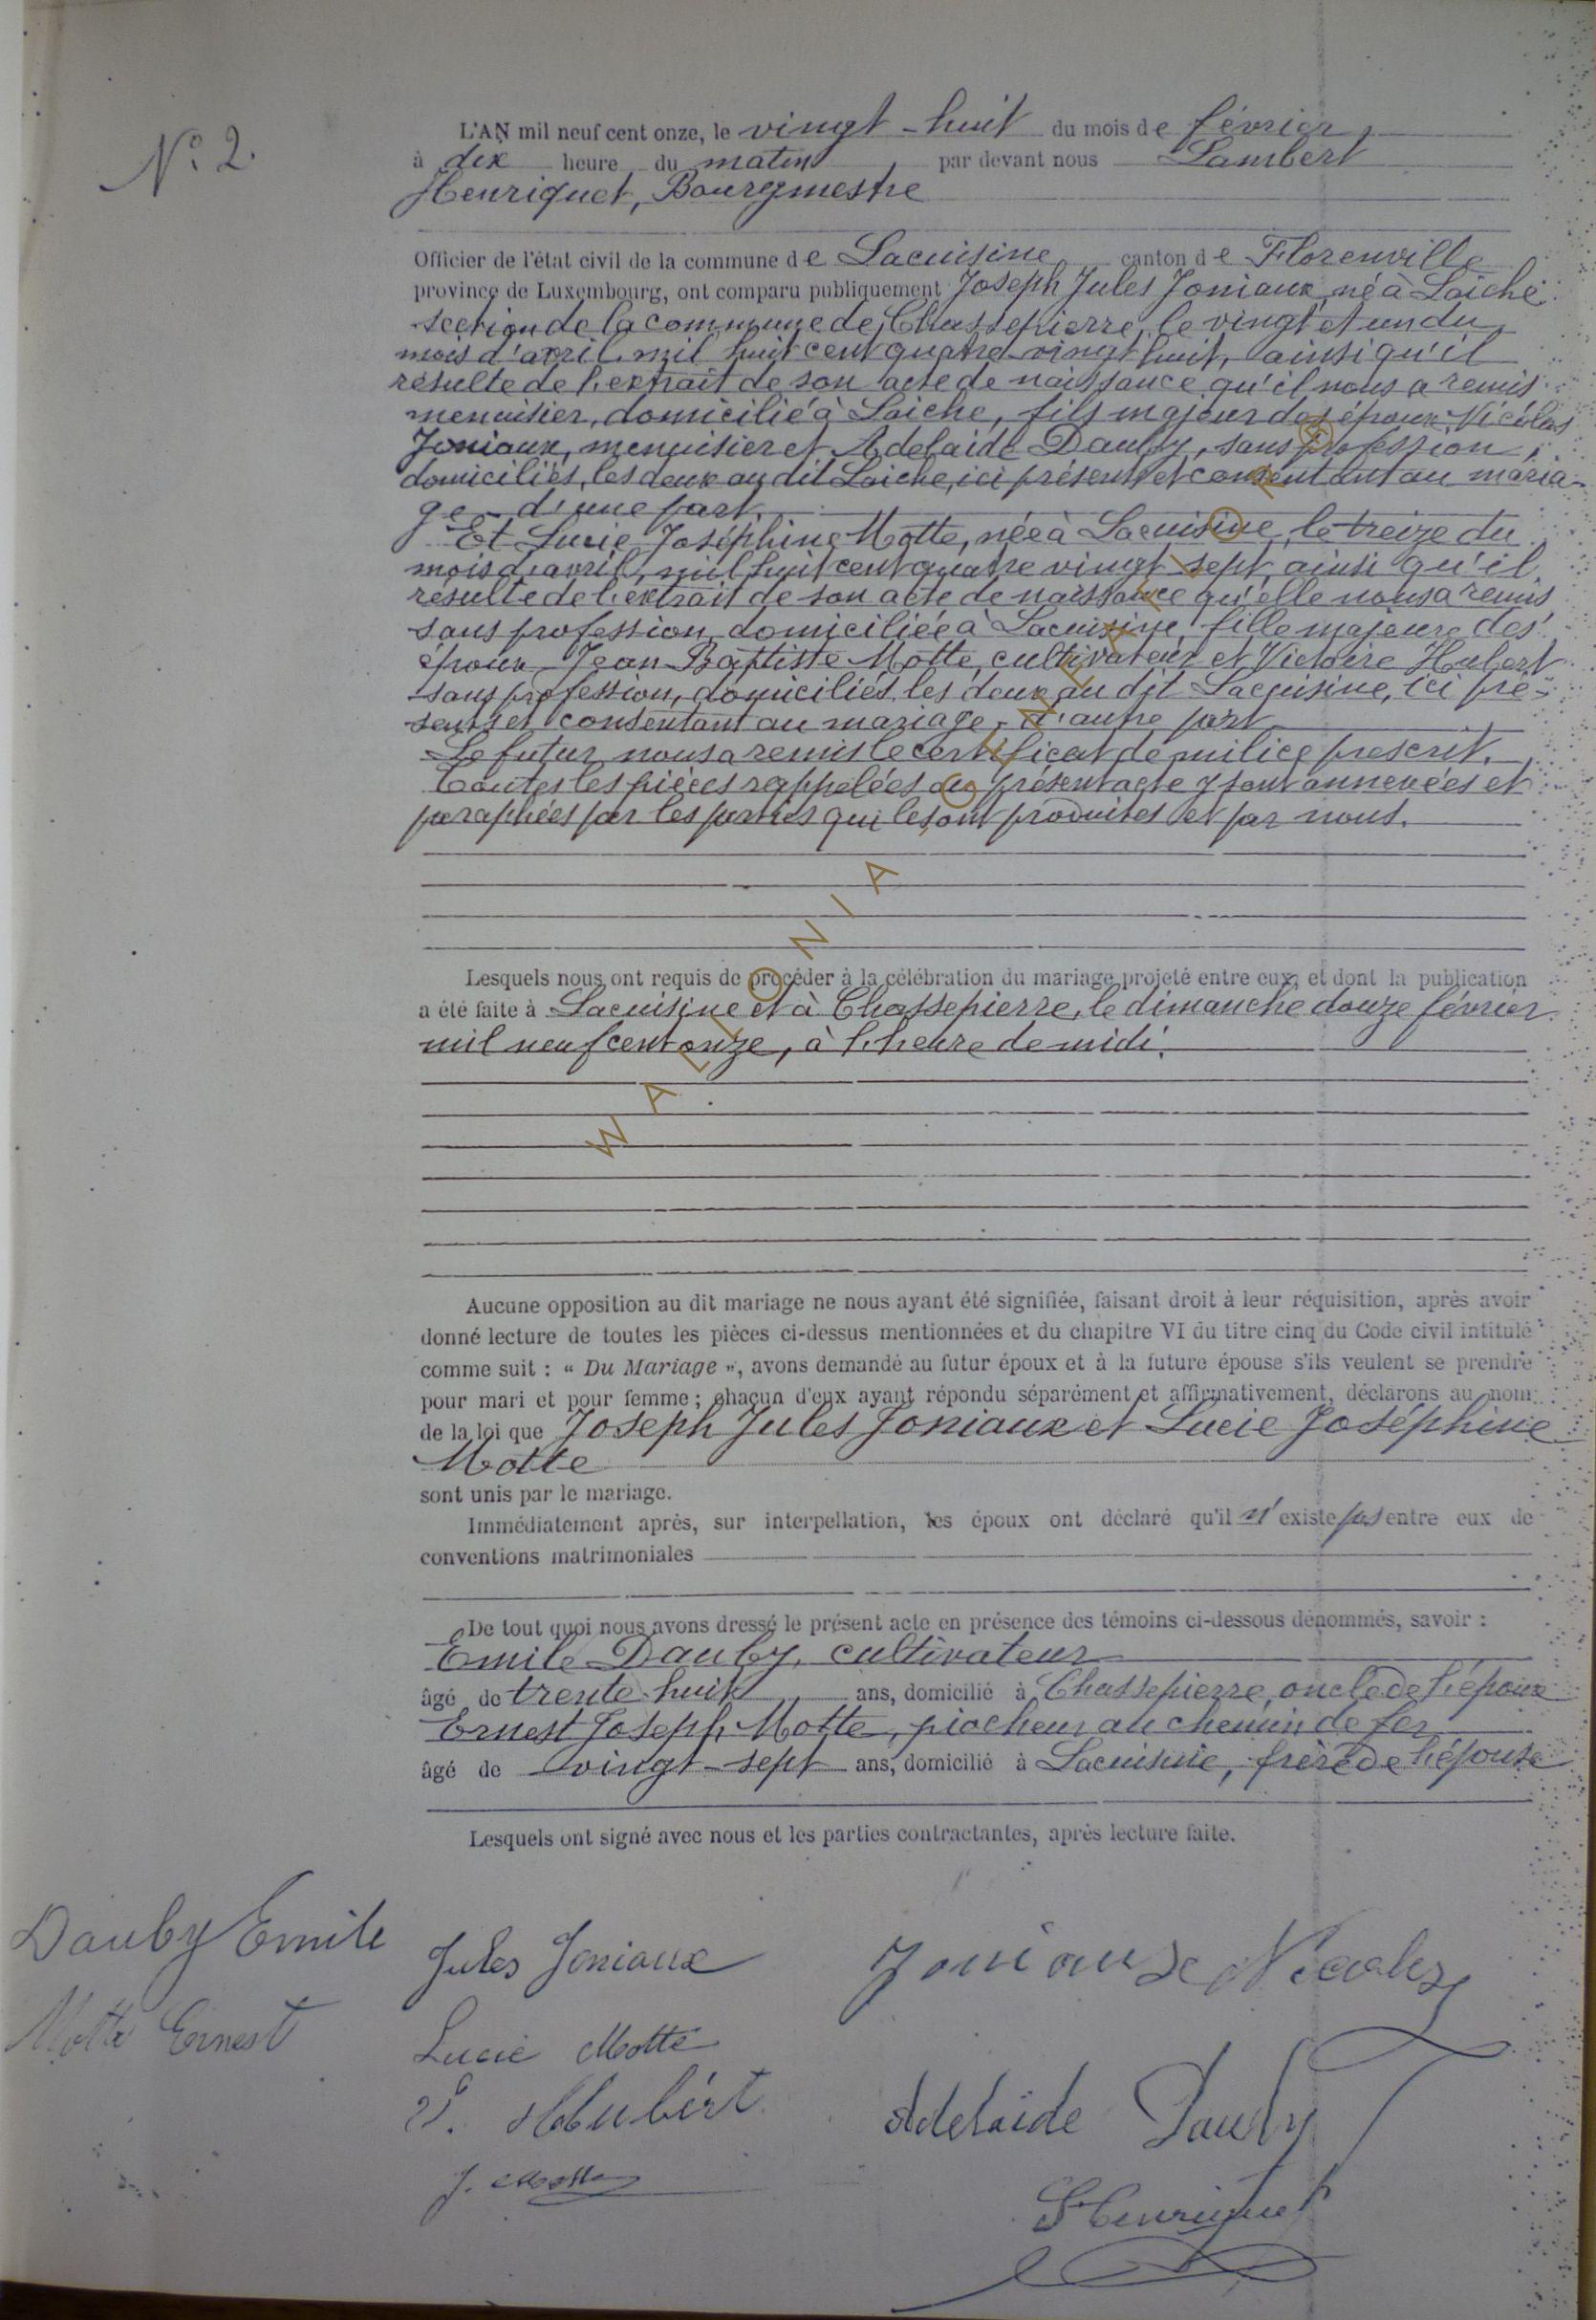 N° 2.
L'AN mil neuf cent onze, le vingt-huit du mois de février,
à dix heure du matin, par devant nous Lambert
Henriquet, Bourgmestre
Officier de l'état civil de la commune de Lacuisine canton de Florenville
province de Luxembourg, ont comparu publiquement Joseph Jules Joniaux, né à Laiche
section de la commune de Chassepierre, le vingt et un du
mois d'avril mil huit cent quatre-vingt huit, ainsi qu'il
résulte de l'extrait de son acte de naissance qu'il nous a remis
menuisier, domicilié à Laiche, fils majeur des époux Nicolas
Joniaux, menuisier et Adelaide Dauby, sans profession,
domiciliés, les deux au dit Laiche, ici présents et consentant au maria-
ge - d'une part.
Et Lucie Joséphine Motte, née à Lacuisine, le treize du
mois d'avril, mil huit cent quatre vingt sept, ainsi qu'il
résulte de l'extrait de son acte de naissance qu'elle nous a remis
sans profession, domiciliée à Lacuisine, fille majeure des
époux Jean Baptiste Motte, cultivateur et Victoire Hubert
sans profession, domiciliés les deux au dit Lacuisine, ici pré-
sents et consentant au mariage, d'autre part
Le futur nous a remis le certificat de milice prescrit.
Toutes les pièces rappelées au présent acte y sont annexées et
paraphées par les parties qui les ont produites et par nous.
Lesquels nous ont requis de procéder à la célébration du mariage projeté entre eux, et dont la publication
a été faite à Lacuisine et à Chassepierre, le dimanche douze février
mil neuf cent onze, à l'heure de midi.
WALLONIA, GENEALOGIE ®
Aucune opposition au dit mariage ne nous ayant été signifiée, faisant droit à leur réquisition, après avoir
donné lecture de toutes les pièces ci-dessus mentionnées et du chapitre VI du titre cinq du Code civil intitulé
comme suit : « Du Mariage », avons demandé au futur époux et à la future épouse s'ils veulent se prendre
pour mari et pour femme ; chacun d'eux ayant répondu séparément et affirmativement, déclarons au nom
de la loi que Joseph Jules Joniaux et Lucie Joséphine
Motte
sont unis par le mariage.
Immédiatement après, sur interpellation, les époux ont déclaré qu'il n'existe pas entre eux de
conventions matrimoniales
De tout quoi nous avons dressé le présent acte en présence des témoins ci-dessous dénommés, savoir :
Emile Dauby, cultivateur
âgé de trente huit ans, domicilié à Chassepierre, oncle de l'époux
Ernest Joseph Motte, piocheur au chemin de fer
âgé de vingt-sept ans, domicilié à Lacuisine, frère de l'épouse
Lesquels ont signé avec nous et les parties contractantes, après lecture faite.
Dauby Emile
Jules Joniaux
Joniaux Nicolas
Motte Ernest
Lucie Motte
V. Hubért
Adelaïde Dauby
J. Motte
L Henriquet